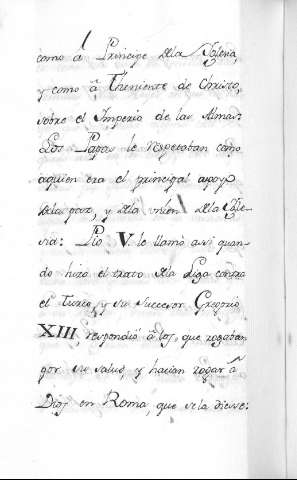 como á Principe dela Iglesia,
y como á Theniente de Christo,
sobre el Imperio de las Almas.
Los Papas le respetaban como
aquien era el principal apoyo
dela paz, y dela union dela Igle-
sia: Pio V. le llamó assi quan-
do hizo el trato dela Liga contra
el Turco, y su succesor Gregorio
XIII, respondió á los, que rogaban
por su salud, y hacian rogar á
Dios en Roma, que sela diesse: